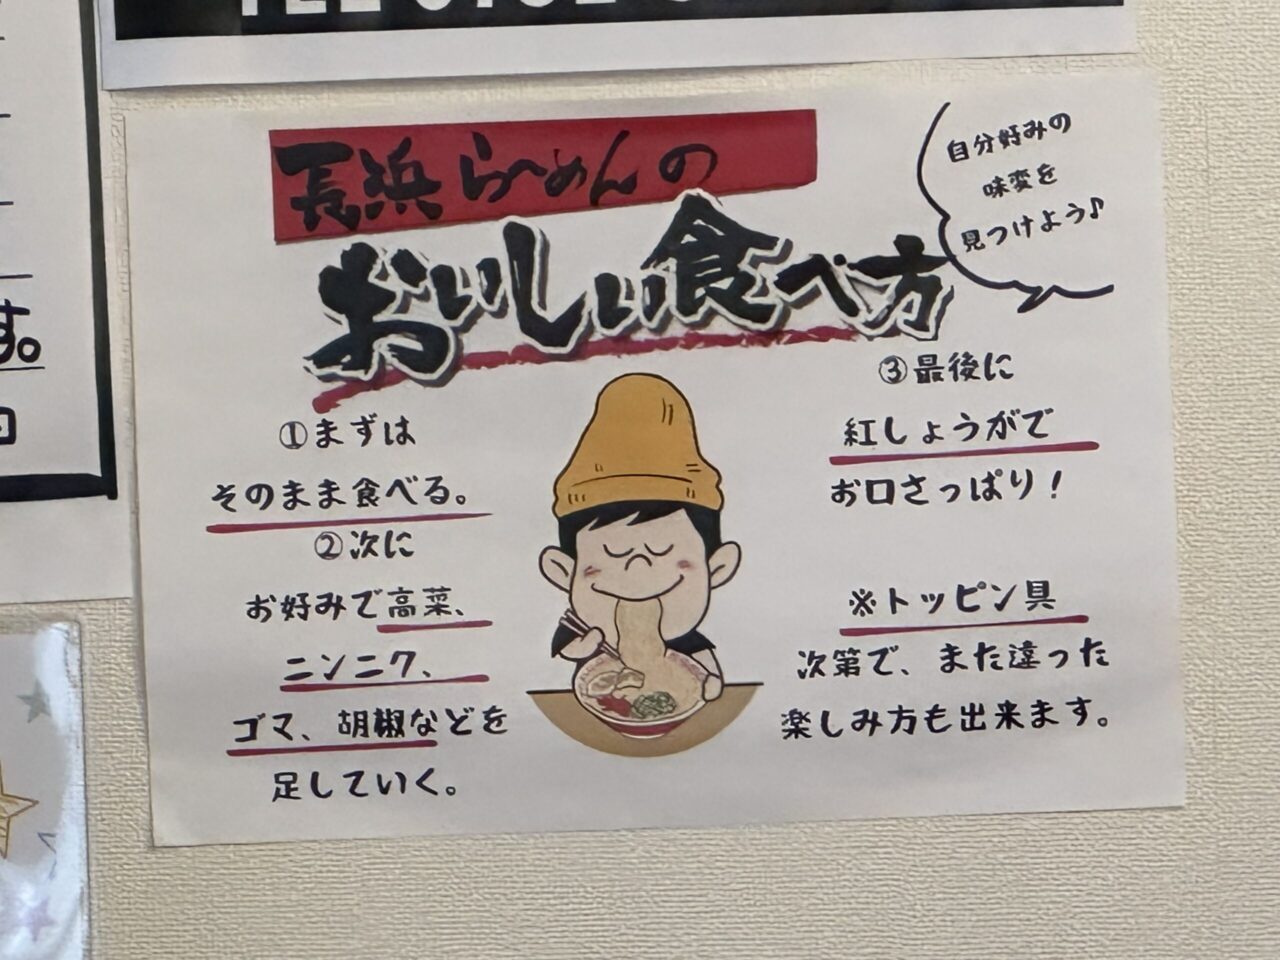 長浜らーめんの
おいしい食べ方
自分好みの
味変を
見つけよう♪
①まずは
そのまま食べる。
②次に
お好みで高菜、
ニンニク、
ゴマ、胡椒などを
足していく。
③最後に
紅しょうがで
お口さっぱり!
※トッピン具
次第で、また違った
楽しみ方も出来ます。
す。